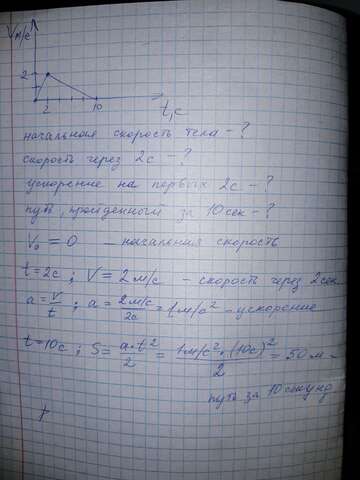 V м/с
2
2 10 t, с
начальная скорость тела - ?
скорость через 2с - ?
ускорение на первых 2с - ?
путь, пройденный за 10 сек - ?
V₀ = 0 — начальная скорость
t=2с ; V = 2 м/с - скорость через 2 сек
a = V/t ; a = 2м/с / 2с = 1 м/с² - ускорение
t=10с ; S = a·t²/2 = 1м/с²·(10с)²/2 = 50 м -
путь за 10 секунд